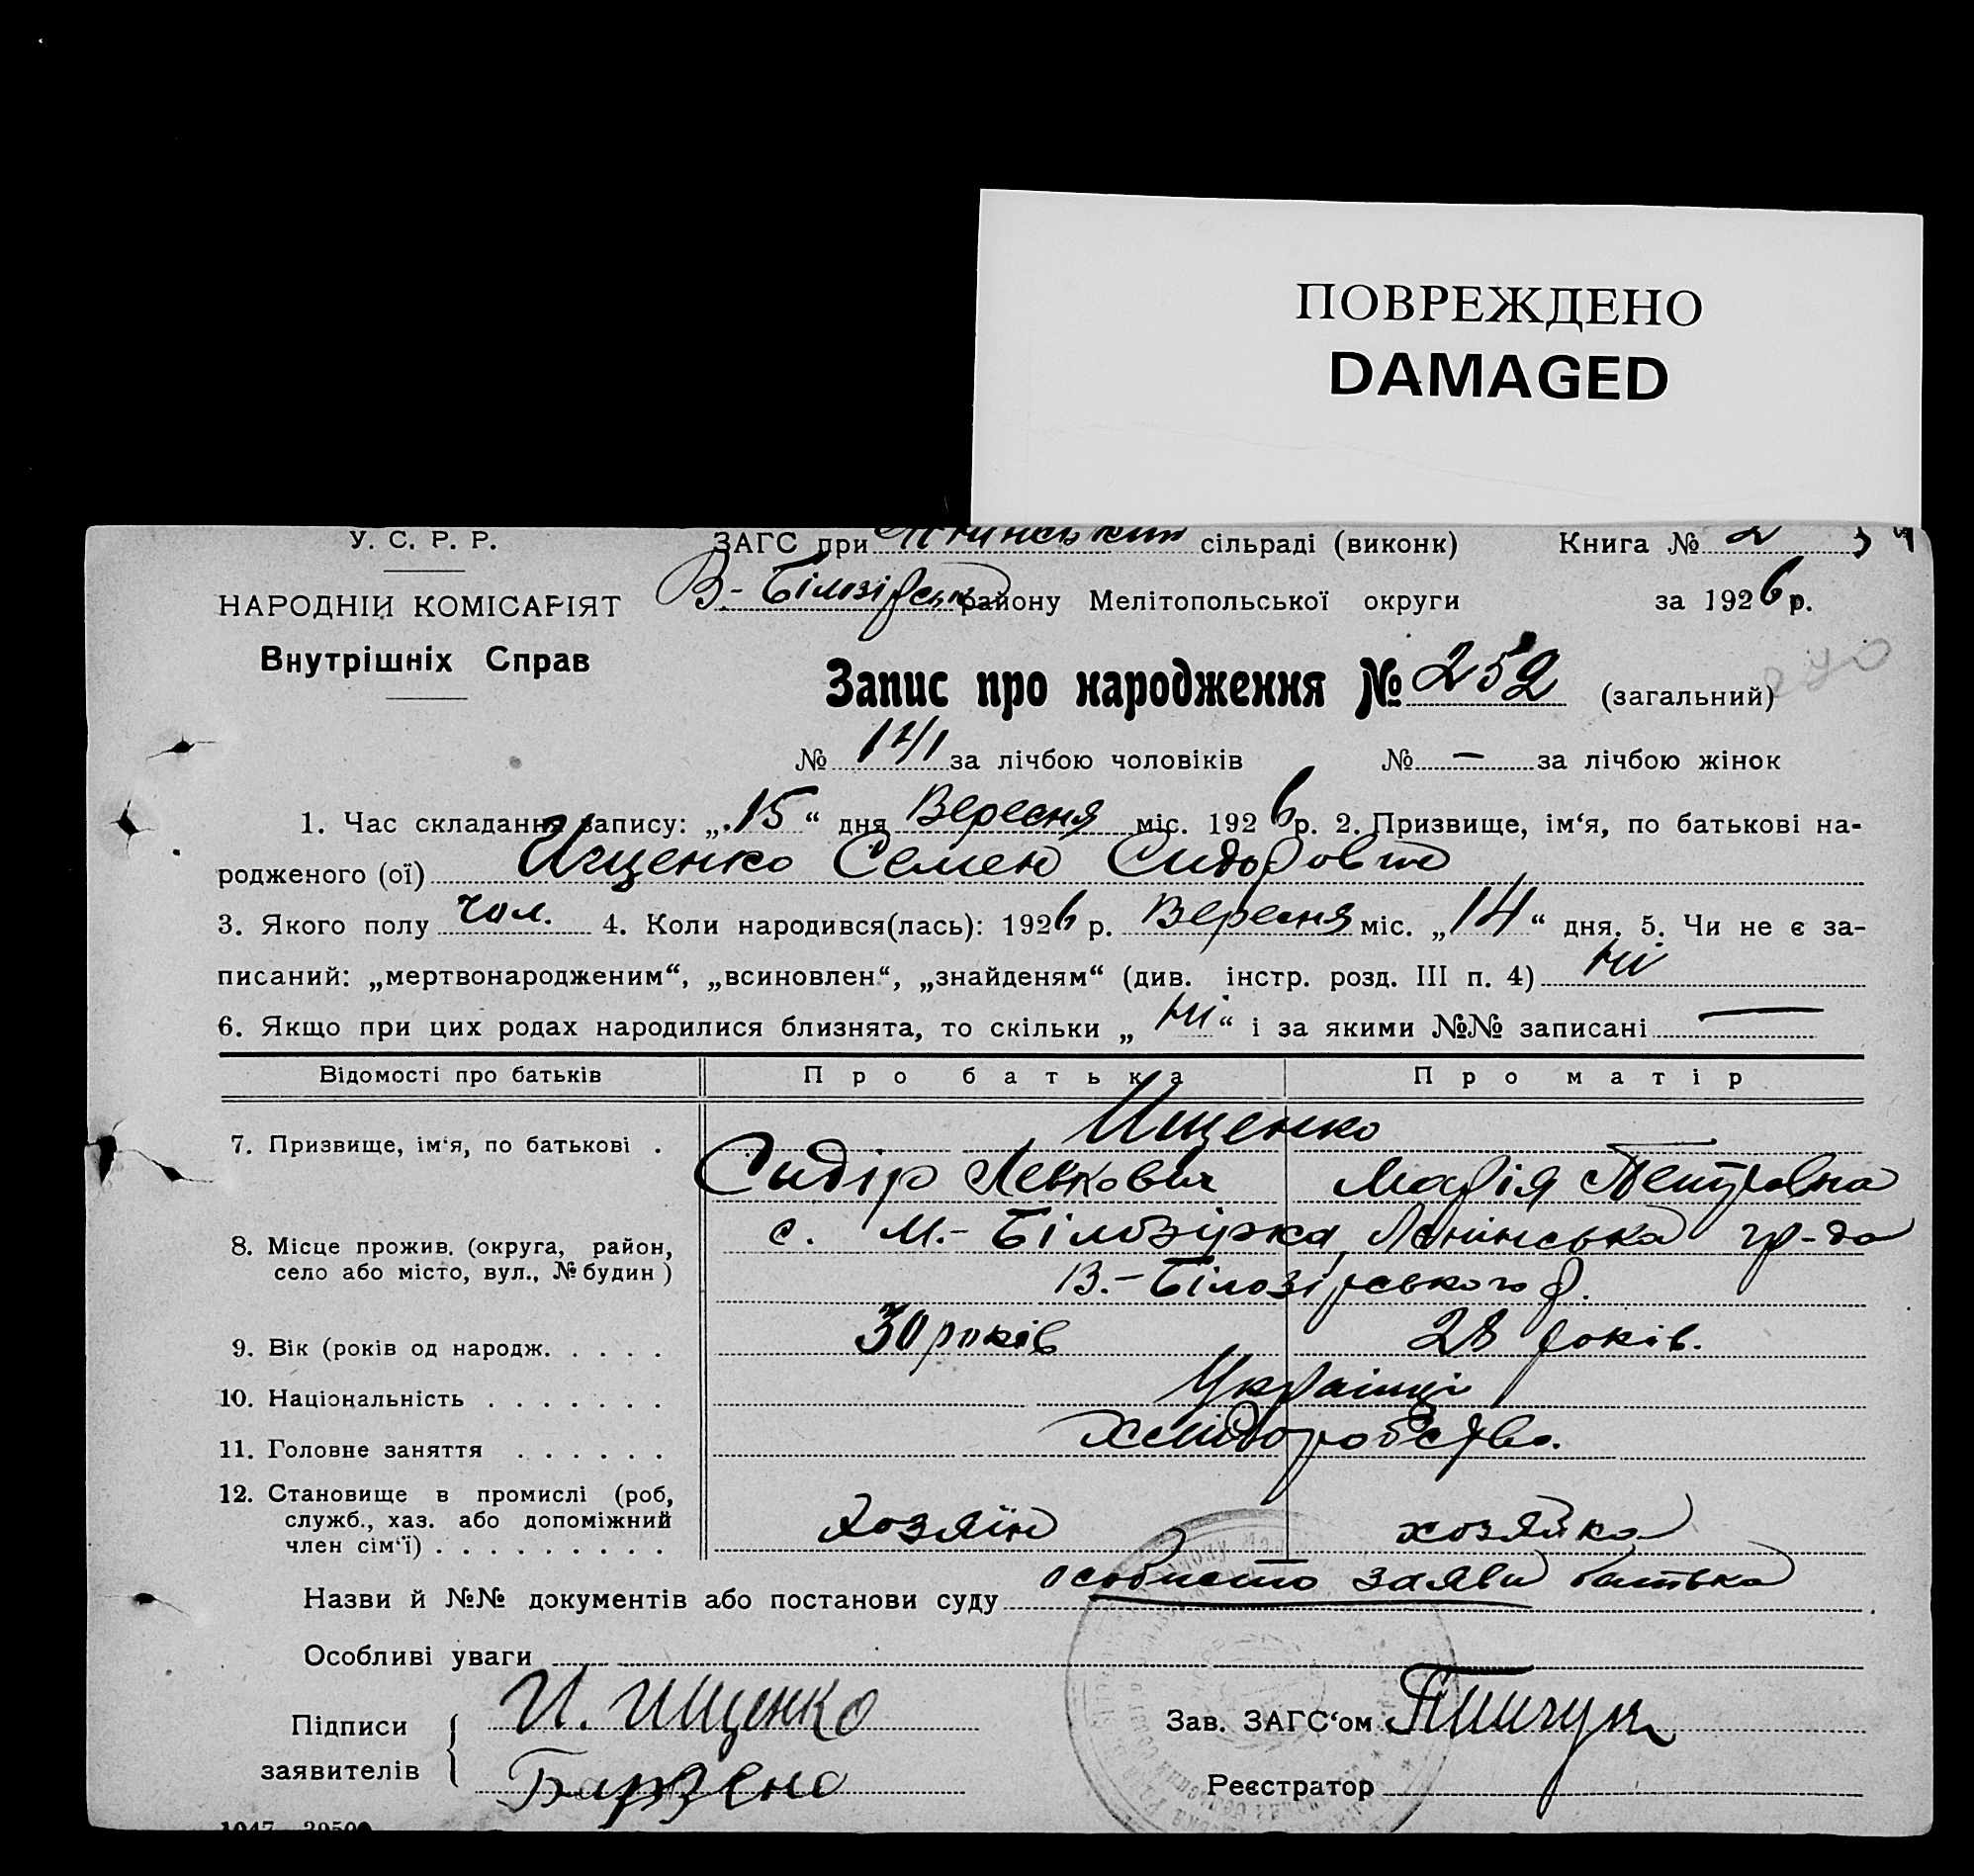 ПОВРЕЖДЕНО
DAMAGED
У. С. Р. Р.
ЗАГС при сільраді (виконк) Книга № 2
НАРОДНІЙ КОМІСАРІЯТ
В-Білозірськ району Мелітопольської округи за 1926 р.
Внутрішніх Справ
Запис про народження № 252 (загальний)
№ 141 за лічбою чоловіків № — за лічбою жінок
1. Час складання запису: „15“ дня Вересня міс. 1926 р. 2. Призвище, ім‘я, по батькові на-
родженого (ої) Ищенко Семен Сидорович
3. Якого полу чол. 4. Коли народився(лась): 1926 р. Вересня міс. „14“ дня. 5. Чи не є за-
писаний: „мертвонародженим“, „всиновлен“, „знайденям“ (див. інстр. розд. III п. 4) ні
6. Якщо при цих родах народилися близнята, то скільки „ні“ і за якими №№ записані —
Відомості про батьків Про батька Про матір
7. Призвище, ім‘я, по батькові . Ищенко —
Сидір Левкович Марія Петровна
8. Місце прожив. (округа, район, с. М.-Білозірка, Ленінська гр-да
село або місто, вул., № будин) В.-Білозірського р.
9. Вік (років од народж. . . . . 30 років 28 років.
10. Національність . . . . . . . Українці
11. Головне заняття . . . . . . хліборобство.
12. Становище в промислі (роб,
служб., хаз. або допоміжний хозяїн хозяйка
член сім‘ї) . . . . . . . . .
Назви й №№ документів або постанови суду особисто заяви батька
Особливі уваги
Підписи И. Ищенко Зав. ЗАГС‘ом
заявителів Реєстратор